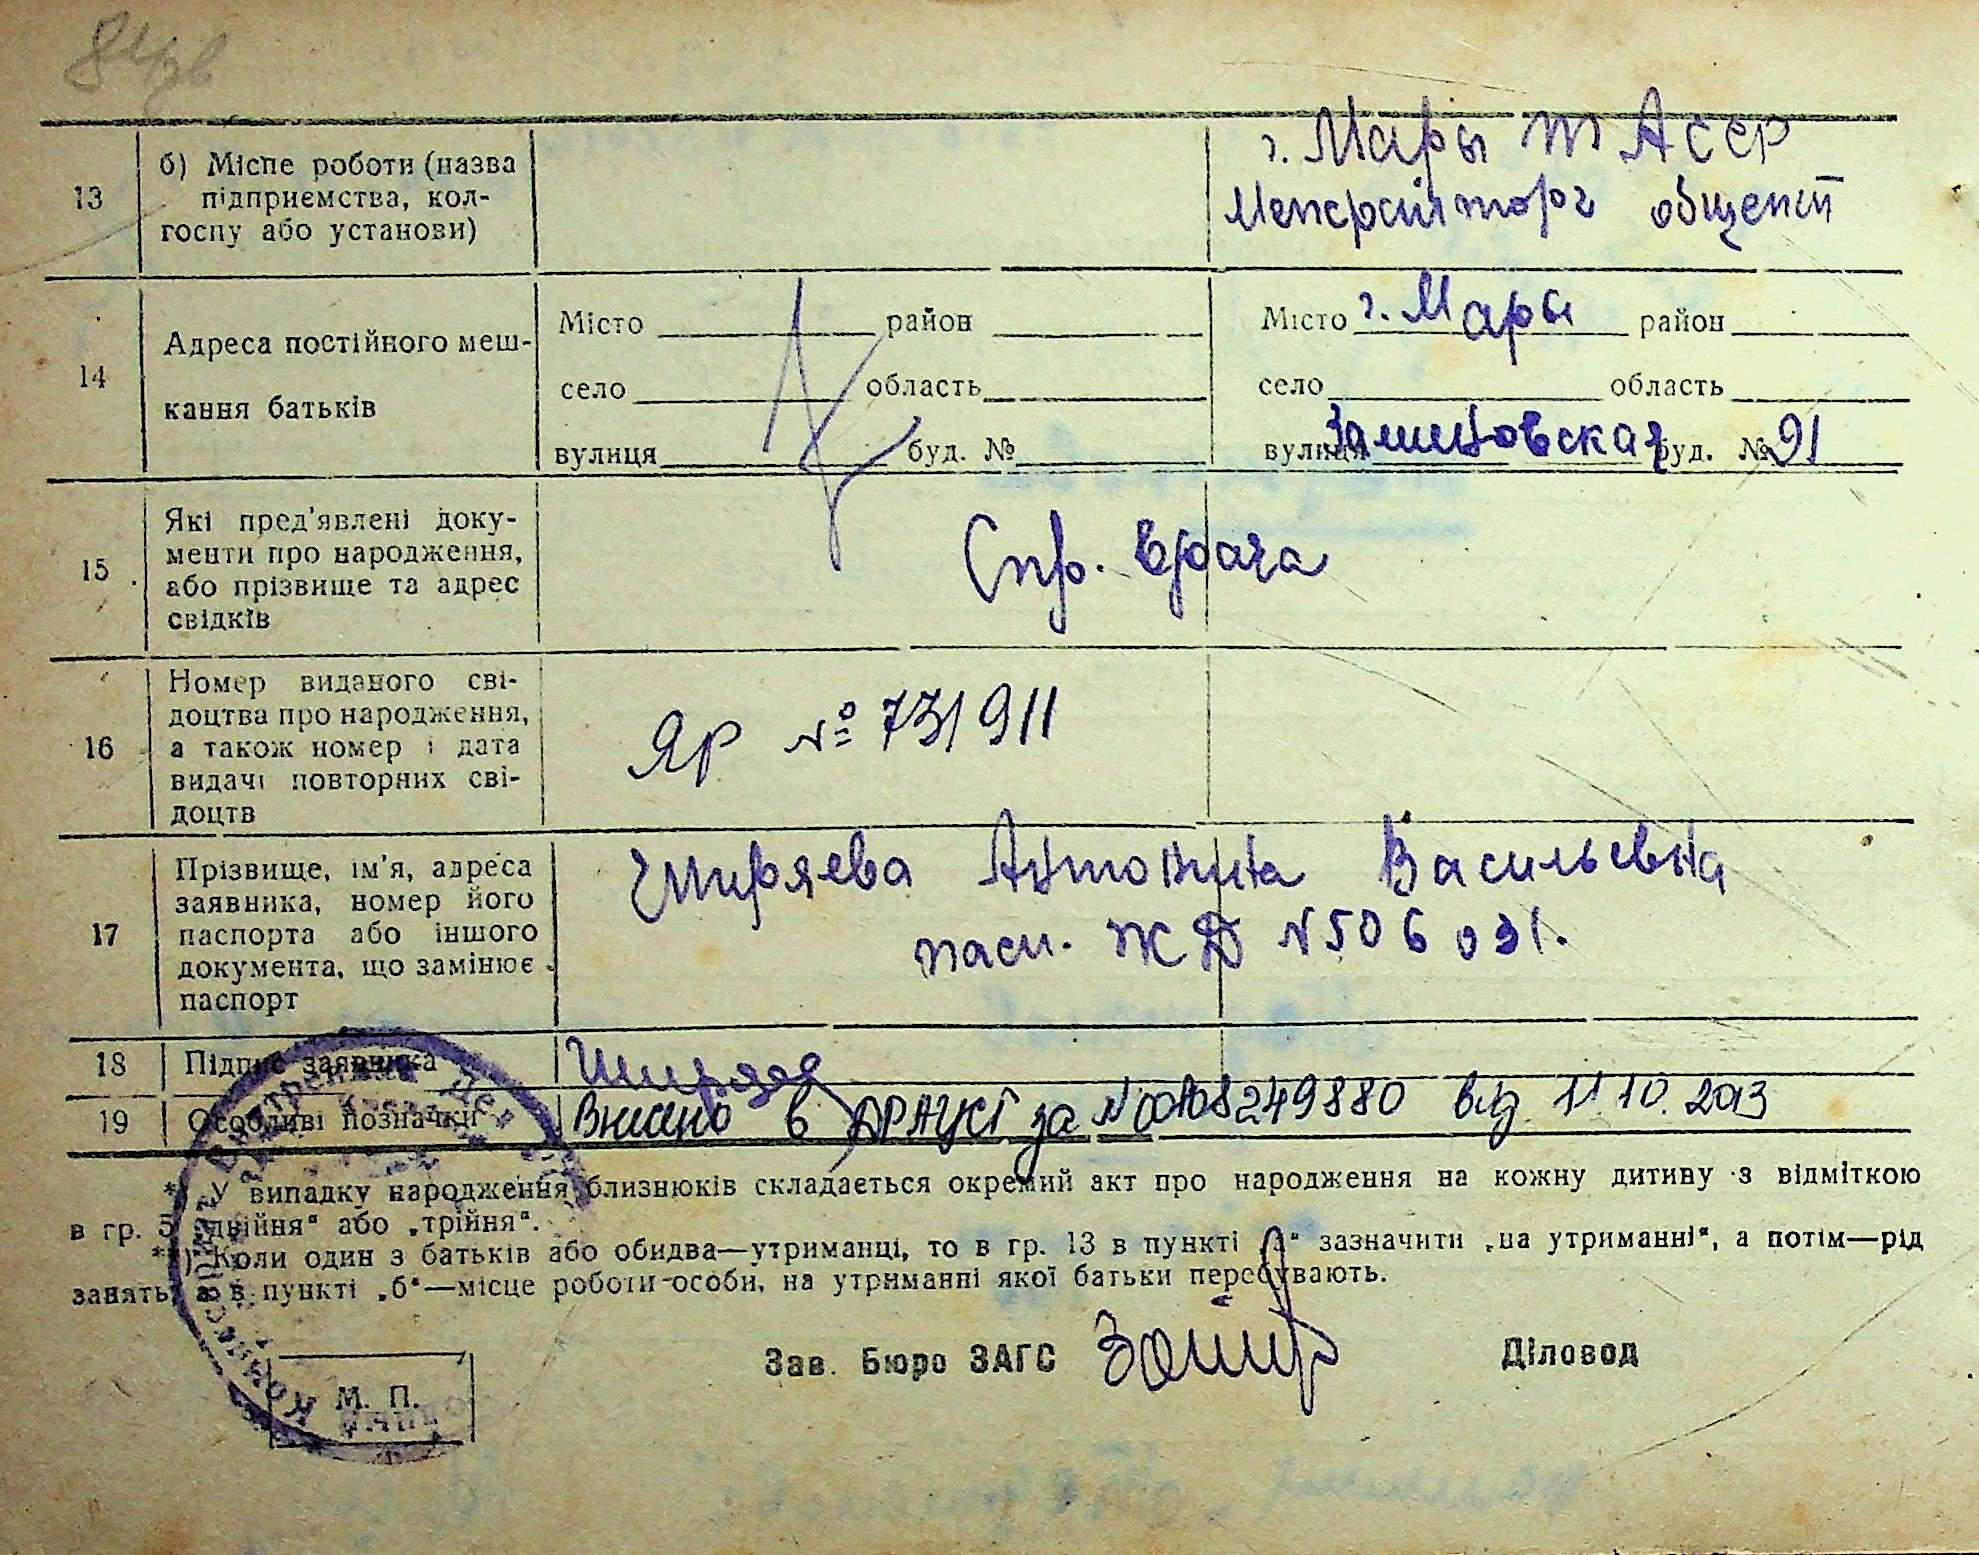 13
б) Місце роботи (назва
підприємства, кол-
госпу або установи)
г. Мары ТАССР
общепит
14
Адреса постійного меш-
кання батьків
Місто район
село область
вулиця буд. №
Місто г. Мары район
село область
вулиця буд. № 91
15
Які пред'явлені доку-
менти про народження,
або прізвище та адрес
свідків
Спр. врача
16
Номер виданого сві-
доцтва про народження,
а також номер і дата
видачі повторних сві-
доцтв
ЯР № 731911
17
Прізвище, ім'я, адреса
заявника, номер його
паспорта або іншого
документа, що замінює
паспорт
Ширяева Антонина Васильевна
пасп. ЖД N 506031.
18
Підпис заявника
19
Особливі позначки
Внесено в ДРАЦСГ за № 00108249880 від 11.10.2013
*) У випадку народження близнюків складається окремий акт про народження на кожну дитину з відміткою
в гр. 5 „двійня“ або „трійня“.
**) Коли один з батьків або обидва—утриманці, то в гр. 13 в пункті „а“ зазначити „на утриманні“, а потім—рід
занять, а в пункті „б“—місце роботи особи, на утриманні якої батьки перебувають.
Зав. Бюро ЗАГС
Діловод
М. П.